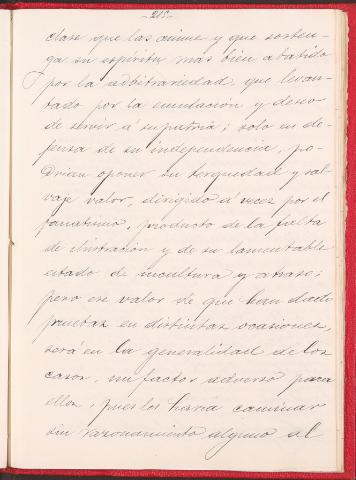 -215-
clase que las anime y que sosten-
ga su espíritu mas bien abatido
por la arbitrariedad, que levan-
tado por la emulación y deseo
de servir á su patria; solo en de-
fensa de su independencia, po-
drian oponer su terquedad y sal-
vaje valor, dirigido á veces por el
fanatismo, producto de la falta
de ilustración y de su lamentable
estado de incultura y atraso;
pero ese valor de que han dado
pruebas en distintas ocasiones,
será en la generalidad de los
casos, un factor adverso para
ellos, pues les haría caminar
sin razonamiento alguno al